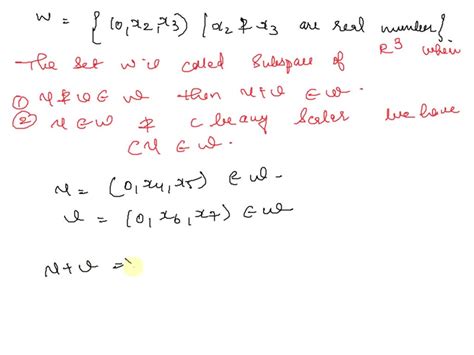 W = { (0, x2, x3) | x2 & x3 are real number}
The set W is called Subspace of R^3 when
① u & v ∈ W then u+v ∈ W.
② u ∈ W & c be any Scaler we have
cu ∈ W.
u = (0, x4, x5) ∈ W.
v = (0, x6, x7) ∈ W
u+v =